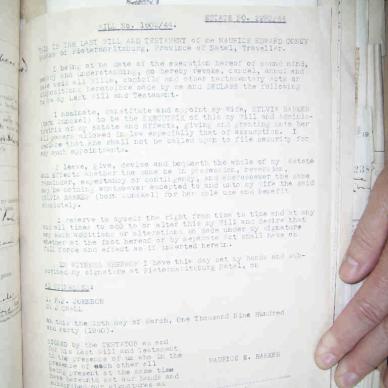 WILL No. 1602/44. ESTATE NO. 2292/44
THIS IS THE LAST WILL AND TESTAMENT of me MAURICE EDWARD CONEY
BARKER of Pietermaritzburg, Province of Natal, Traveller.
I being at the date of the execution hereof of sound mind,
memory and understanding, do hereby revoke, cancel, annul and
make void all wills, codicils and other testamentary acts or
dispositions heretofore made by me and DECLARE the following
to be my Last Will and Testament.
I nominate, constitute and appoint my wife, SYLVIA BARKER
(born Dunkell) to be the EXECUTRIX of this my Will and Adminis-
tratrix of my Estate and Effects, giving and granting unto her
all powers allowed in law especially that of assumption. I
require that she shall not be called upon to file security for
any such appointments.
I leave, give, devise and bequeath the whole of my Estate
and Effects whether the same be in possession, reversion,
remainder, expectancy or contingency, and wheresoever the same
may be outside, whatsoever excepted to and unto my wife the said
SYLVIA BARKER (born Dunkell) for her sole use and benefit
absolutely.
I reserve to myself the right from time to time and at any
and all times to add to or alter this my Will and declare that
any such additions or alterations so made under my signature
whether at the foot hereof or by separate Act shall have as
full force and effect as if inserted herein.
IN WITNESS WHEREOF I have this day set my hands and sub-
scribed my signature at Pietermaritzburg Natal, on
AS WITNESSES:
1. JOHNSON
2.
on this the 12th day of March, One Thousand Nine Hundred
and Forty (1940).
SIGNED by the TESTATOR as and
for his last Will and Testament
in the presence of us who in the
presence of each other all
being present at the same time
have hereunto set our hands and
subscribed our signatures as
MAURICE E. BARKER